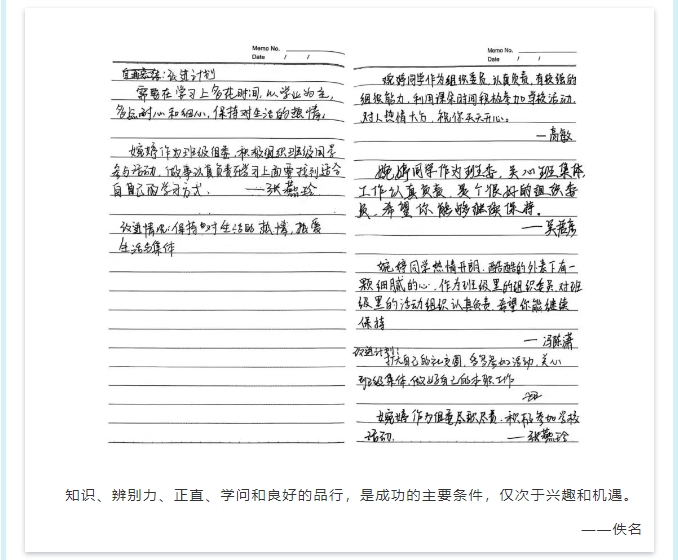 Memo No.
Date / /
自我总结：改进计划
需要在学习上多花时间，以学业为主，
多点耐心和细心，保持对生活的热情，
婉婷作为班级组委，积极组织班级同学
参与活动，做事认真负责在学习上面要找到适合
自己的学习方式。 ——张嘉玲
改进情况：保持对生活的热情，热爱
生活与集体
Memo No.
Date / /
婉婷同学作为组织委员，认真负责，有较强的
组织能力，利用课余时间积极参加学校活动，
对人热情大方，祝你天天开心。
—高敏
婉婷同学作为班委，关心班集体
工作认真负责，是个很好的组织委
员，希望你能够继续保持。
——吴
婉婷同学热情开朗，酷酷的外表下有一
颗细腻的心，作为班级里的组织委员，对班
级里的活动组织认真负责，希望你能继续
保持
—冯陈潇
改进计划：
扩大自己的社交圈，多多参加活动，关心
班级集体，做好自己的本职工作
婉婷作为组委尽职尽责，积极参加学校
活动。 ——张嘉玲
知识、辨别力、正直、学问和良好的品行，是成功的主要条件，仅次于兴趣和机遇。
——佚名